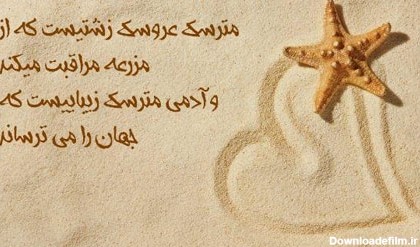 مترسک عروسک زشتیست که از
مزرعه مراقبت میکند
و آدمی مترسک زیباییست که
جهان را می ترساند
Downloadefilm.ir